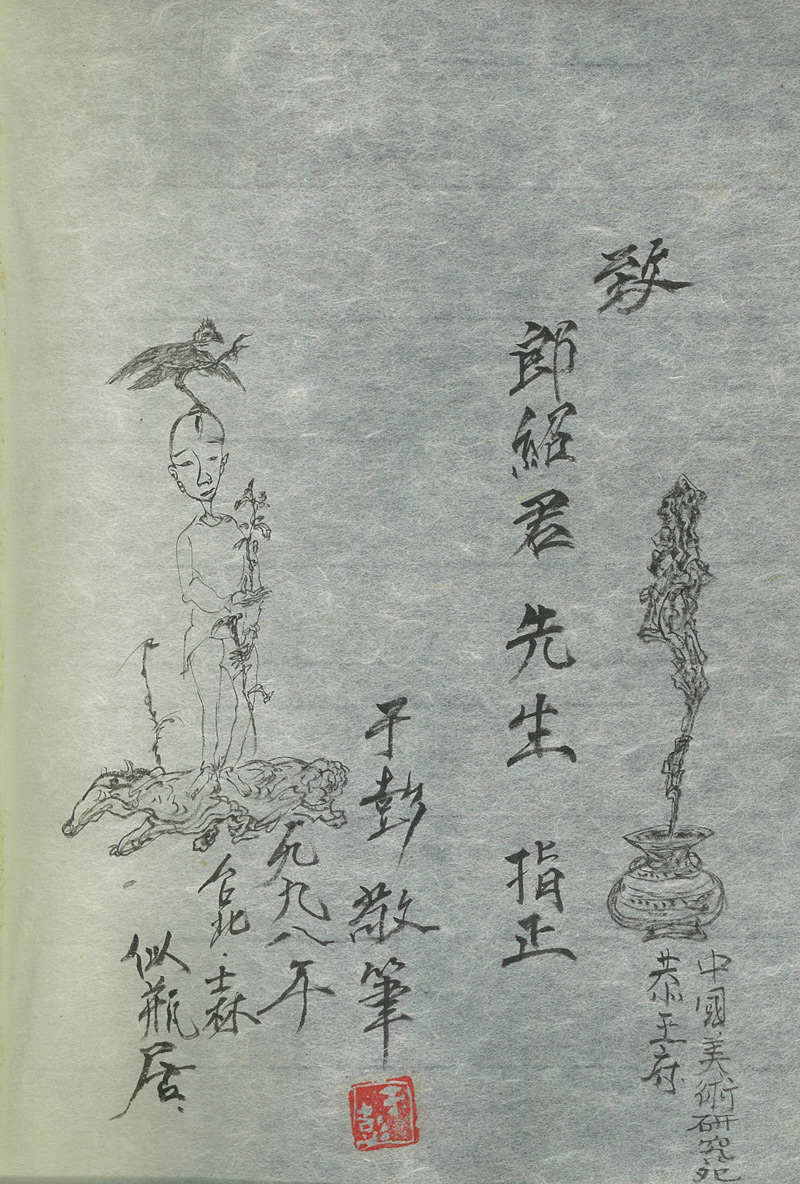 致
郎紹君先生 指正
中國美術研究
恭王府
于彭敬筆
一九九八年
台北·士林
似瓶居
于彭